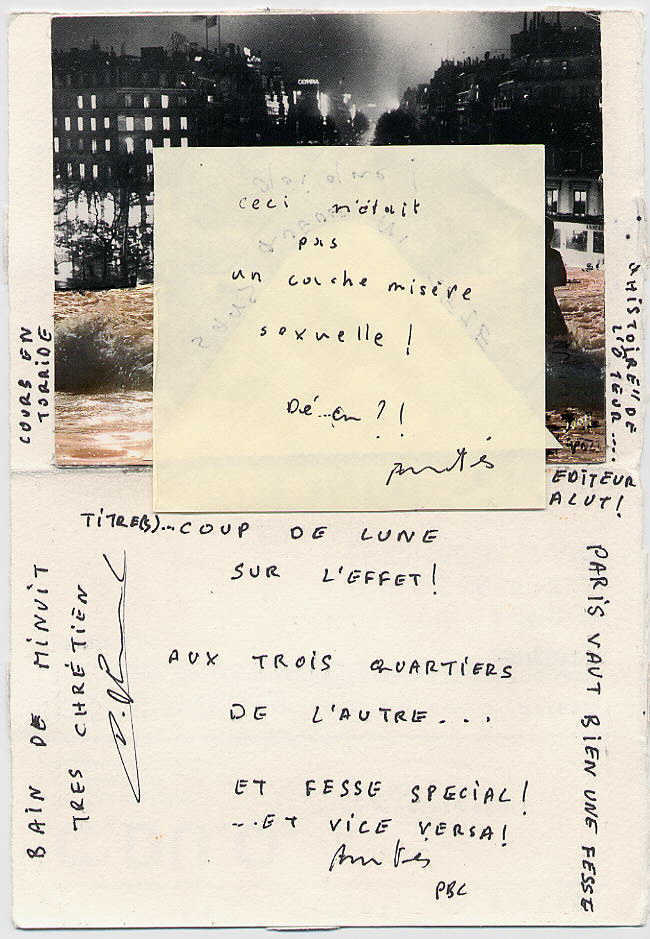 OLYMPIA
ceci n'était
pas
un cache misère
sexuelle !
Dé...çu ?!
Amitiés
COURS EN
TORRIDE
"HISTOIRE" DE
L'OTEUR....
EDITEUR
ALUT!
TITRE(S)...COUP DE LUNE
SUR L'EFFET!
AUX TROIS QUARTIERS
DE L'AUTRE...
ET FESSE SPECIAL!
...ET VICE VERSA!
Amitiés
PBC
BAIN DE MINUIT
TRES CHRÉTIEN
PARIS VAUT BIEN UNE FESSE